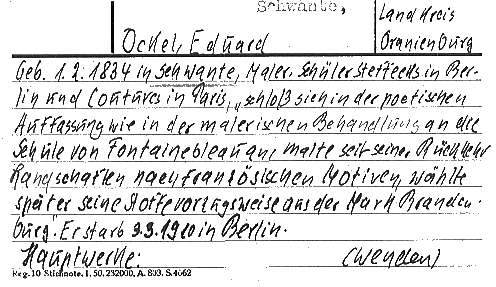 Schwante,
Land Kreis
Oranienburg
Ockel, Eduard
Geb. 1.2.1834 in Schwante, Maler. Schüler Steffecks in Ber-
lin und Coutures in Paris, „schloß sich in der poetischen
Auffassung wie in der malerischen Behandlung an die
Schule von Fontainebleau an, malte seit seiner Rückkehr
Landschaften nach französischen Motiven, wählte
später seine Stoffe vorzugsweise aus der Mark Branden-
burg." Er starb 3.3.1910 in Berlin.
Hauptwerke: (Wenden)
Reg. 10 Stichnote. I. 50. 232000, A. 803. S. 4662